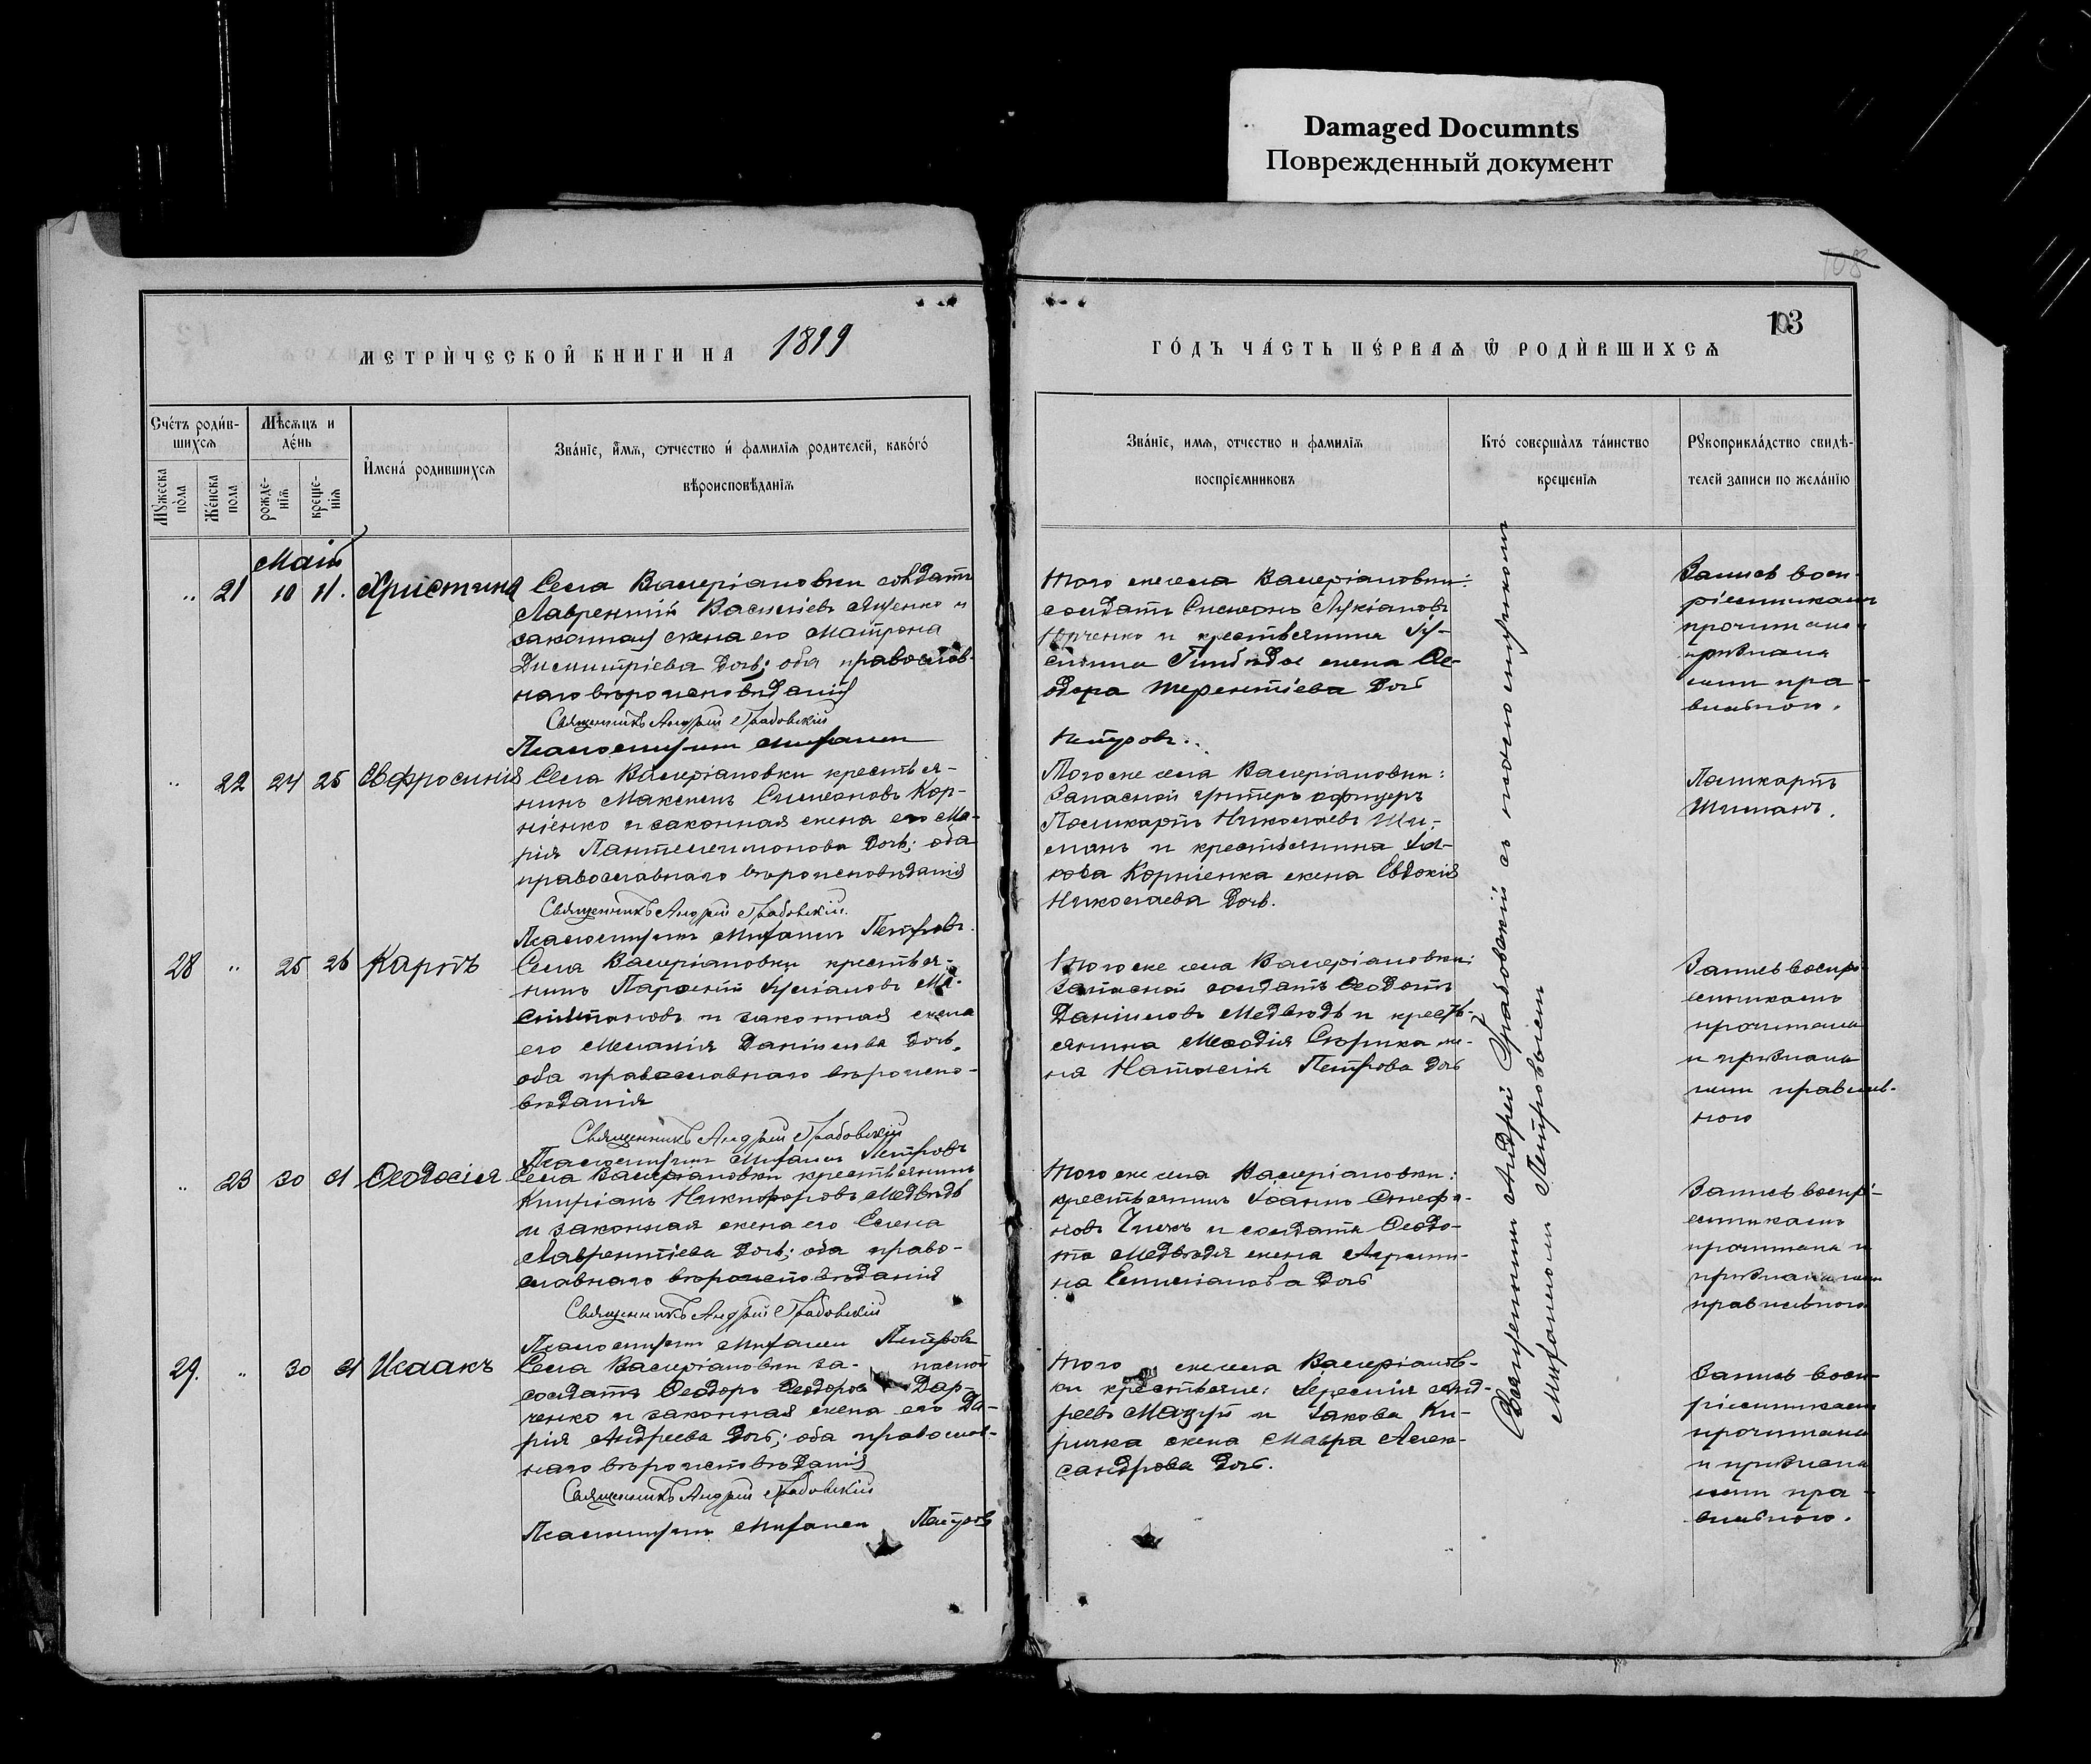 Damaged Documnts
Поврежденный документ
108
103
МЕТРИ́ЧЕСКОЙ КНИГИ НА 1899
ГО́ДЪ ЧА́СТЬ ПЕ́РВАѦ Ѿ РОДИ́ВШИХСѦ
Счéтъ роди́в-
шихсѧ
Мѣсѧцъ и
де́нь
Мꙋ́жеска
по́ла
Же́нска
пола
рожде-
нїѧ
креще-
нїѧ
И҆мена́ родившихсѧ
Зва́нїе, и҆́мѧ, ѻтчество и҆ фамилїѧ родителей, како́гѡ́
вѣроисповѣ́данїѧ
Зва́нїе, имѧ, отчество и фамилїѧ
воспрїемниковъ
Кто́ соверша́лъ та́инство
крещенїѧ
Рꙋкоприкла́дство свидѣ-
телей записи по жела́нїю
Май
21 10 11. Христина
Села Валеріановки солдатъ
Лаврентій Васильевъ Яценко и
законная жена его Матрона
Димитріева дочь; оба православ-
наго вѣроисповѣданія
Священникъ Андрей Грабовскій
Псаломщикъ Митрофанъ
Того же села Валеріановки:
солдатъ Симеонъ Лукіановъ
и крестьянина
жена Ѳе-
одора Терентіева дочь
Петровъ.
Запись восп-
ріемникамъ
прочитана и
признана
ими пра-
вильною.
22 24 25 Евфросинія
Села Валеріановки крестья-
нинъ Максимъ Симеоновъ Кор-
ніенко и законная жена его Ма-
рія Пантелеимонова дочь; оба
православнаго вѣроисповѣданія
Священникъ Андрей Грабовскій.
Псаломщикъ Петровъ.
Того же села Валеріановки:
Запасной унтеръ офицеръ
Поликарпъ Николаевъ Ши-
манъ и крестьянина Іа-
кова Корніенка жена Евдокія
Николаева дочь.
Поликарпъ
Шиманъ.
28 25 26 Карпъ
Села Валеріановки крестья-
нинъ
и законная жена
его Меланія Даніилова дочь,
оба православнаго вѣроиспо-
вѣданія
Священникъ Андрей Грабовскій
Псаломщикъ Петровъ
Того же села Валеріановки:
запасной солдатъ Ѳеодотъ
Даніиловъ Медвѣдь и кресть-
янина Меѳодія же-
на Наталія Петрова дочь
Запись воспрі-
емникамъ
прочитана
и признана
ими правиль-
ною
23 30 31 Ѳеодосія
Села Валеріановки крестьянинъ
Кипріанъ Никифоровъ Медвѣдь
и законная жена его Елена
Лаврентіева дочь; оба право-
славнаго вѣроисповѣданія
Священникъ Андрей Грабовскій
Псаломщикъ Петровъ
Того же села Валеріановки:
крестьянинъ Іоаннъ Стефа-
новъ и солдата Ѳеодо-
та Медвѣдя жена Агрипи-
на Емиліанова дочь
Запись воспрі-
емникамъ
прочитана и
признана ими
правильною
29. 30 31 Исаакъ
Села Валеріановки за- пасной
солдатъ Ѳеодоръ Ѳеодоровъ Дар-
ченко и законная жена его Да-
рія Андреева дочь; оба православ-
наго вѣроисповѣданія
Священникъ Андрей Грабовскій
Псаломщикъ Петровъ
Того же села Валеріанов-
ки крестьяне: Іеремія Анд-
реевъ Мазуръ и Іакова Ки-
ричка жена Мавра Алек-
сандрова дочь.
Запись восп-
ріемникамъ
прочитана
и признана
ими пра-
вильною.
Священникъ Андрей Грабовскій съ псаломщикомъ
Петровымъ